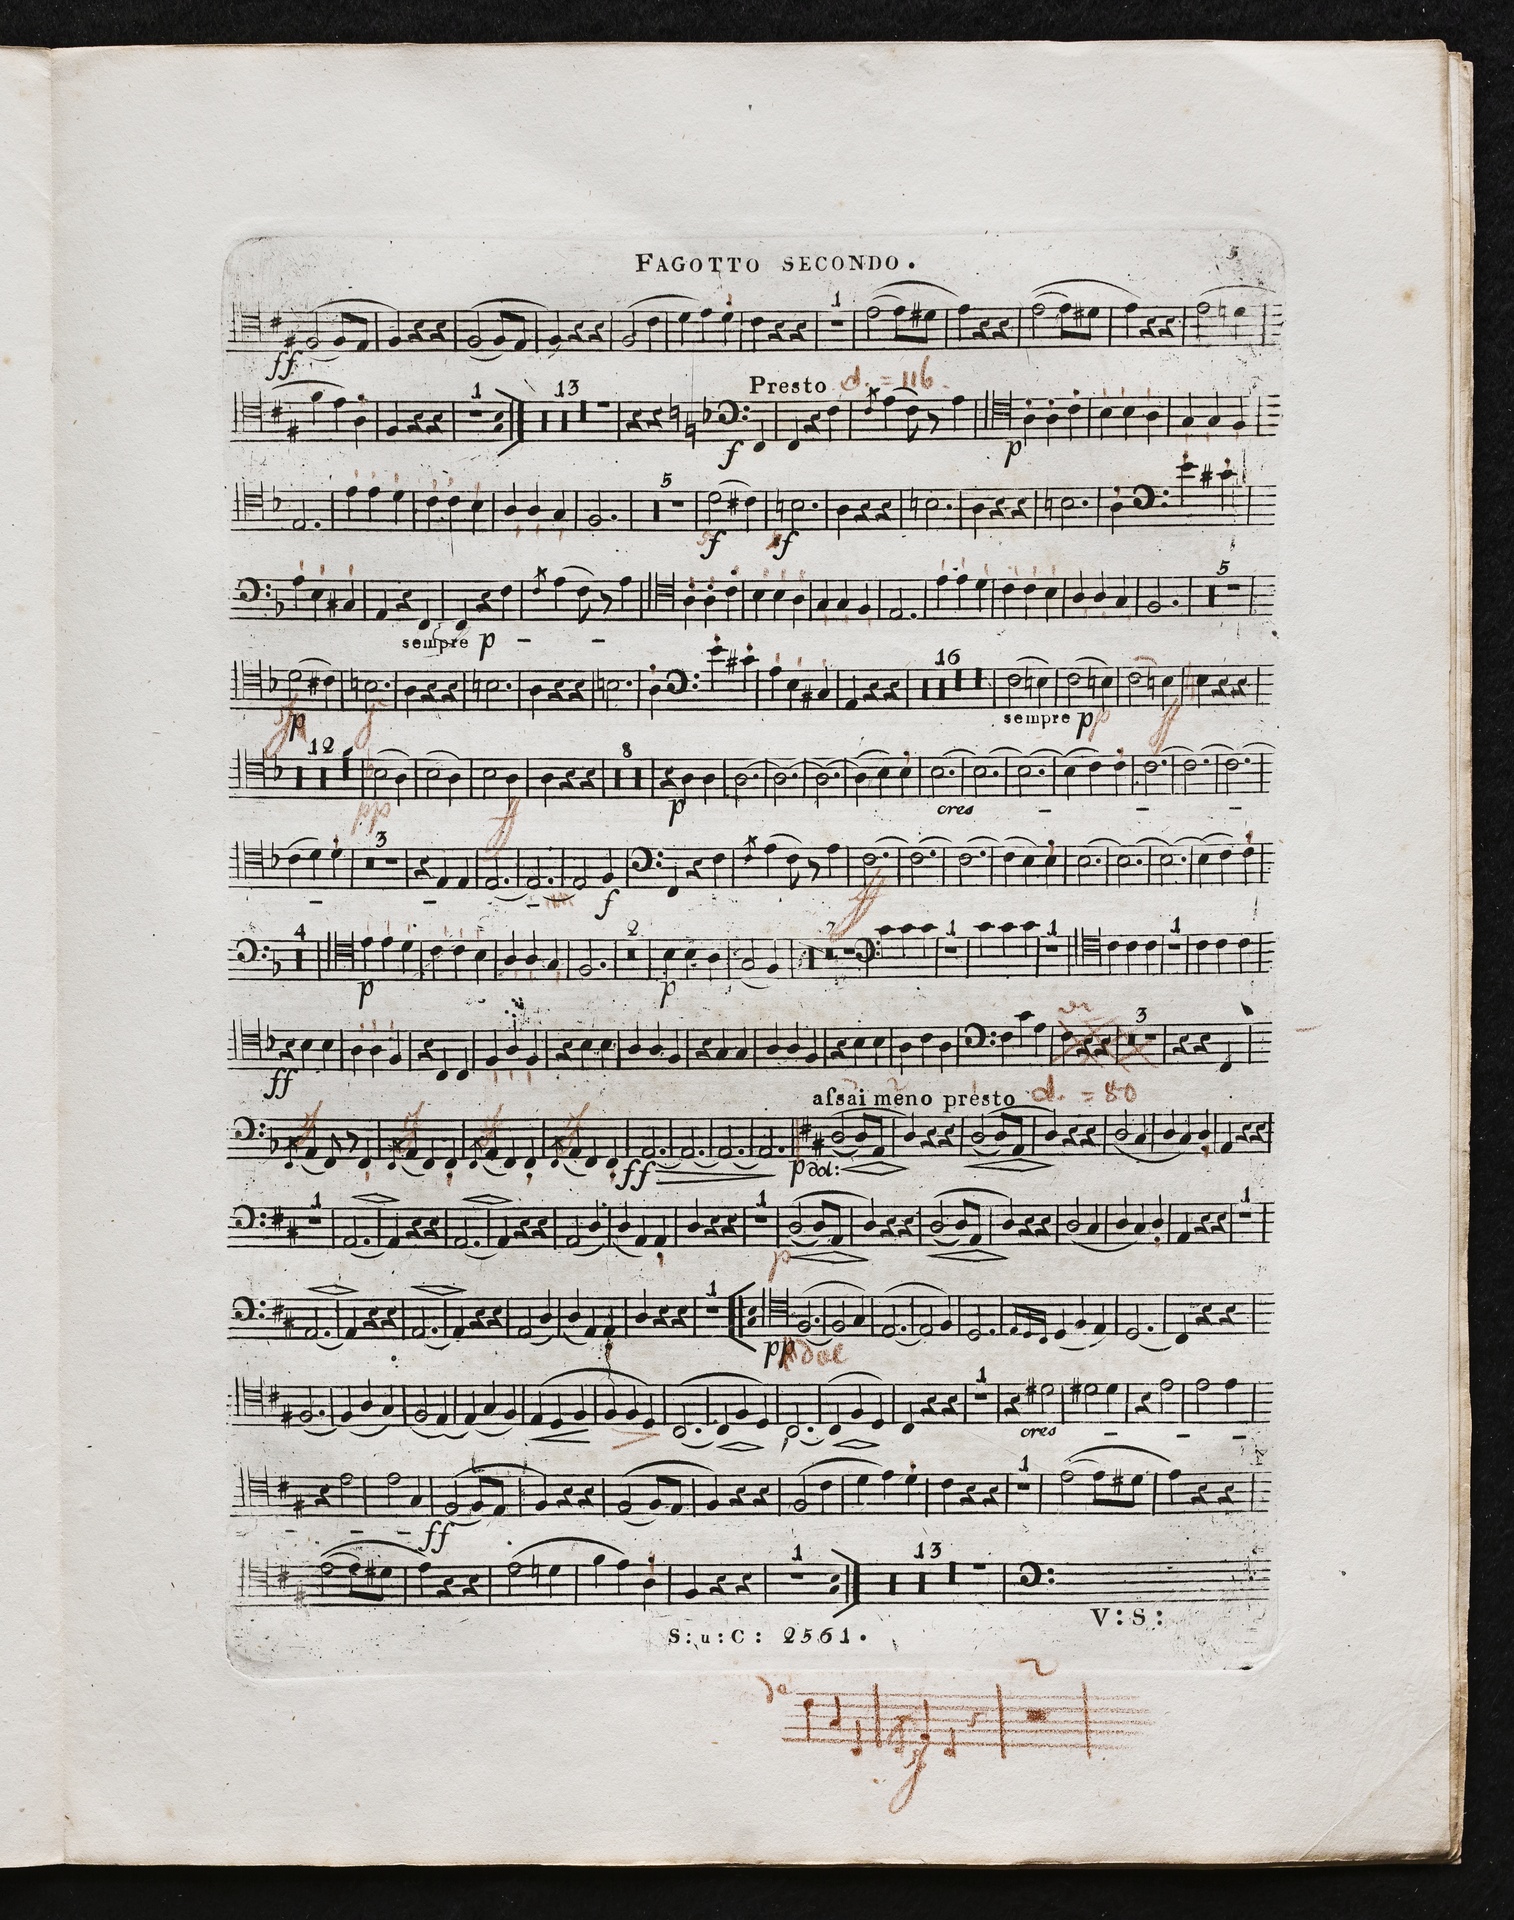 FAGOTTO SECONDO. 5
1
ff
1 13 Presto d. = 116.
f p
5
sf sf
5
sempre p - -
16
p sempre pp ff
12 8
pp ff p cres - - -
3
- - - f ff
4 2 2 1 1 1
p p
3
ff
assai meno presto d. = 80
ff p dol:
1 1 1
p
1
pp dol
1
cres - - -
1
- - - ff
1 13
V: S:
S: u: C: 2561.
2